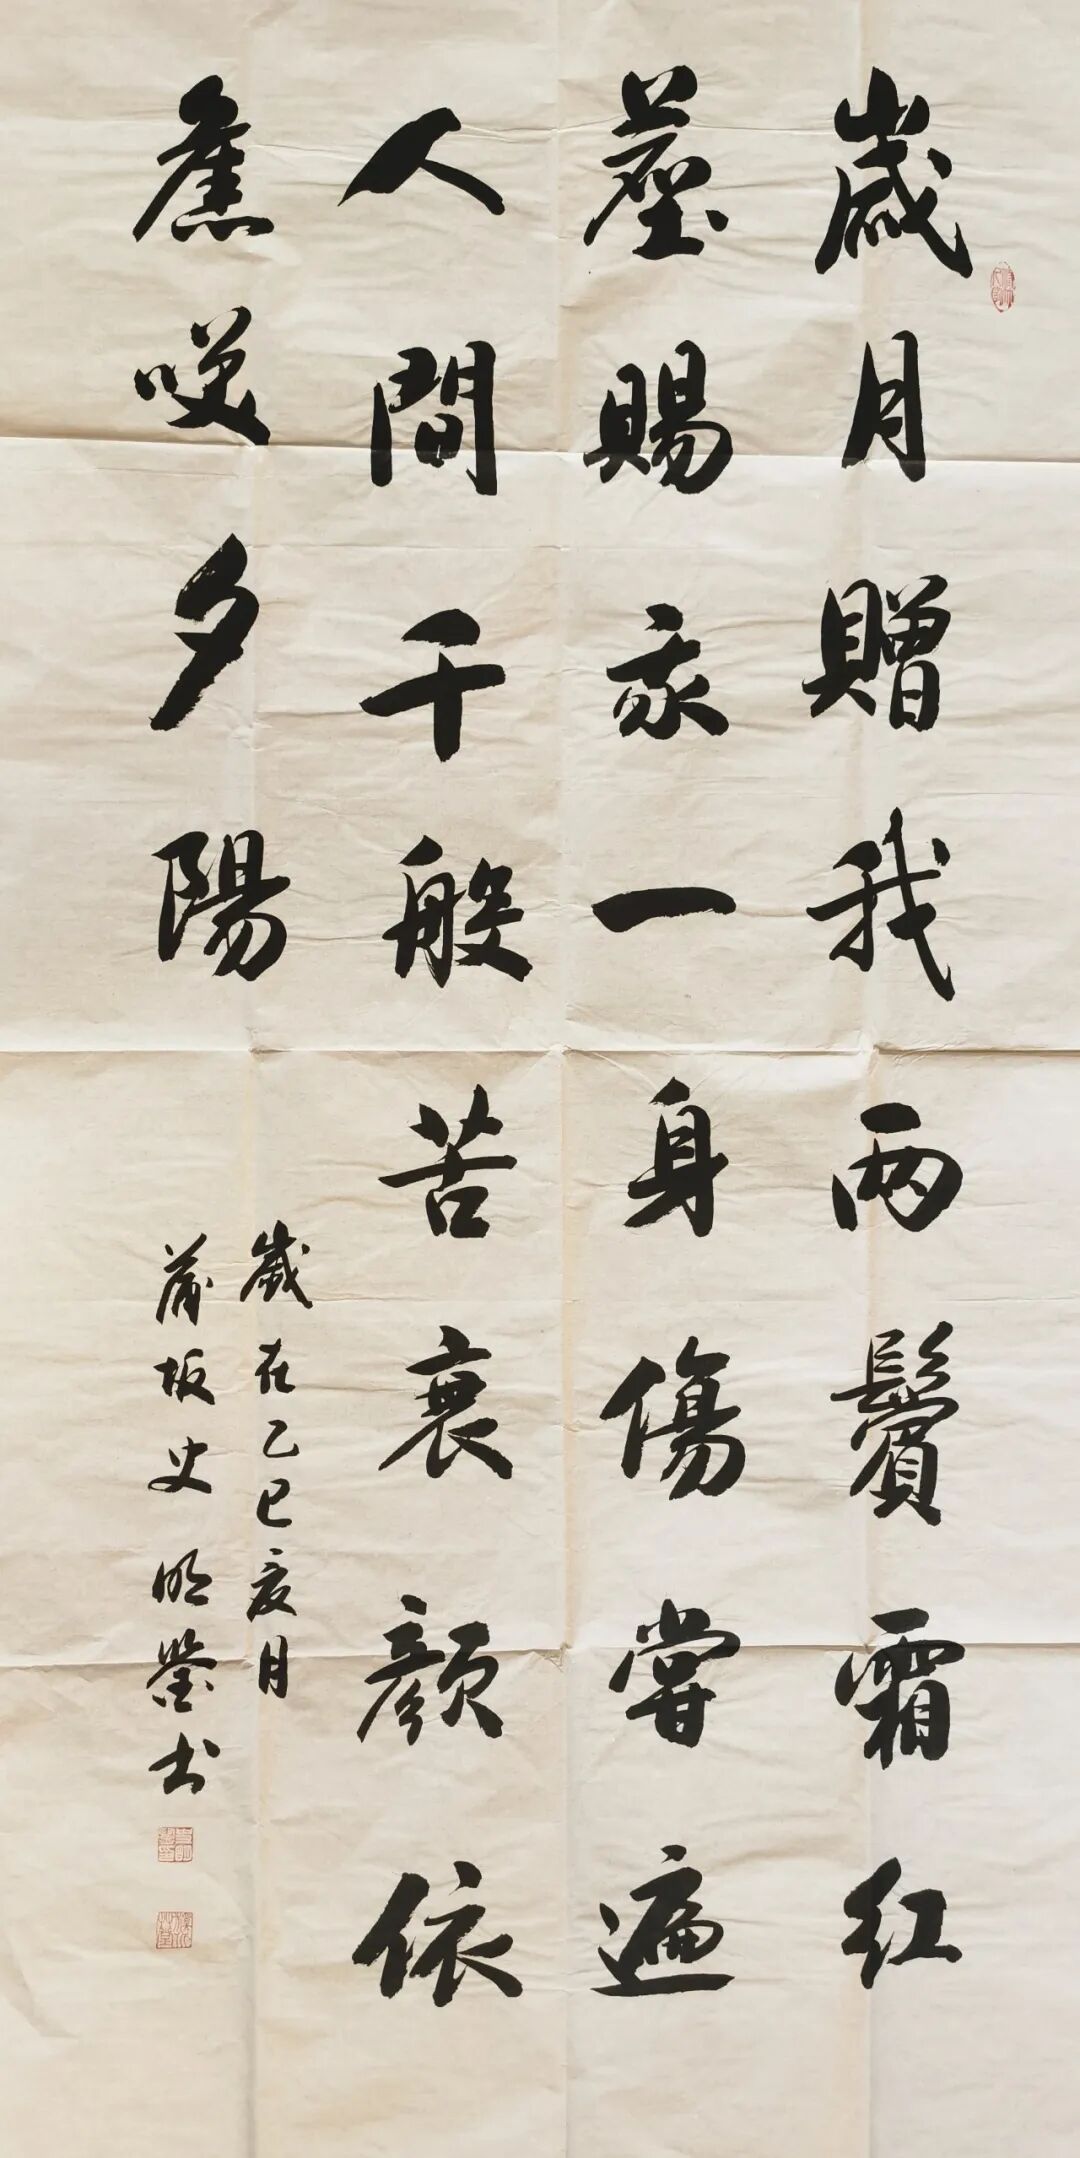 歲月贈我两鬢霜红
塵賜我一身傷嘗遍
人間千般苦衰顏依
舊咲夕陽
歲在乙巳亥月
蒲坂史明鑒书